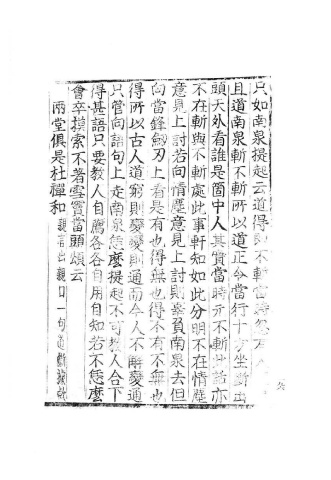 只如南泉提起云道得即不斬當時忽有人
且道南泉斬不斬所以道正令當行十方坐斷出
頭天外看誰是箇中人其實當時元不斬此話亦
不在斬與不斬處此事軒知如此分明不在情塵
意見上討若向情塵意見上討則辜負南泉去但
向當鋒劒刃上看是有也得無也得不有不無也
得所以古人道窮則變變則通而今人不解變通
只管向語句上走南泉恁麼提起不可教人合下
得甚語只要教人自薦各各自用自知若不恁麼
會卒摸索不著雪竇當頭頌云
兩堂俱是杜禪和 親言出親口一句道斷據款